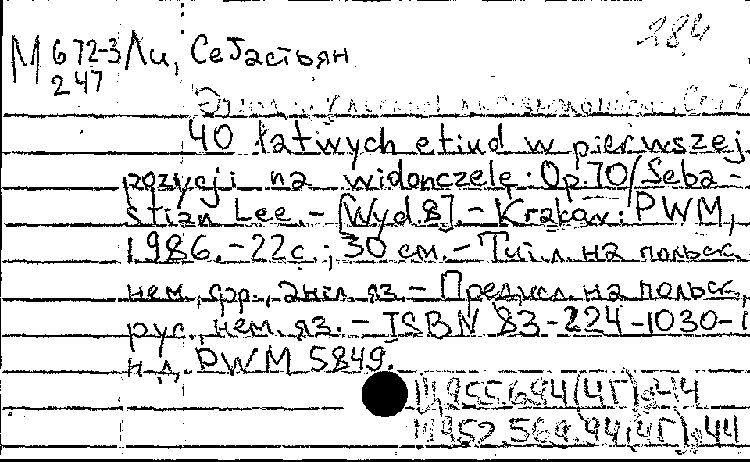 284
М 672-3 Ли, Себастьян
247
40 łatwych etiud w pierwszej
pozycji na wiolonczelę: Op. 70/Seba-
stian Lee. - [Wyd. 8]. - Kraków: PWM,
1986. - 22 с.; 30 см. - Тит. л. на польск.
нем., фр., англ. яз. - Предисл. на польск.,
рус., нем. яз. - ISBN 83-224-1030-1
н.д. PWM 5849.